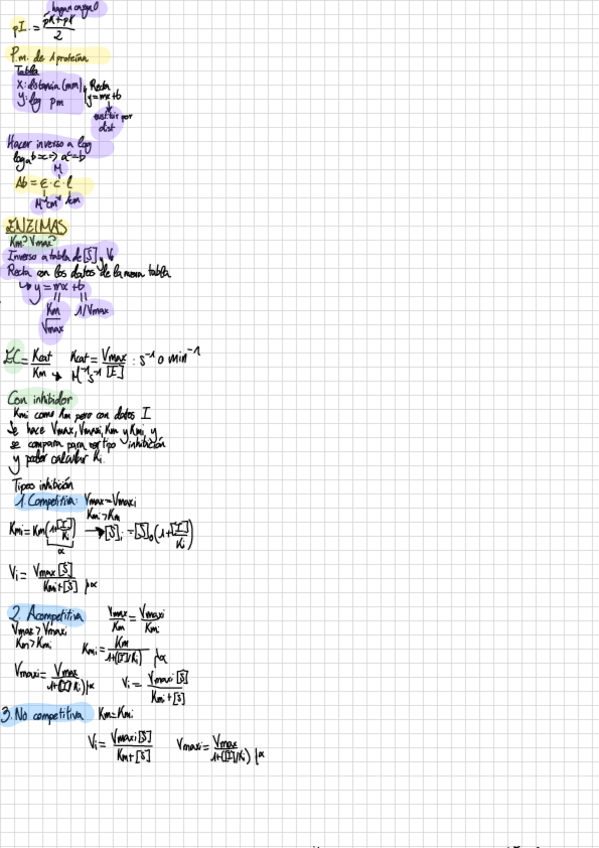 hagan carga 0
pI = pK + pK / 2
P.m. de 1 proteína
Tabla
X: distancia (mm) | Recta
y: log pm y = mx + b
sustituir por
dist
Hacer inverso a log
log_a b = c => a^c = b
M
Ab = ε · c · l
M⁻¹cm⁻¹ 1cm
ENZIMAS
Km? Vmax?
Inverso a tabla de [S] y V₀
Recta con los datos de la nueva tabla
↳ y = mx + b
Km / Vmax 1/Vmax
EC = Kcat / Km → M⁻¹s⁻¹ Kcat = Vmax / [E] : s⁻¹ o min⁻¹
Con inhibidor
Kmi como Km pero con datos I
Se hace Vmax, Vmaxi, Km y Kmi, y
se compara para ver tipo inhibición
y poder calcular Ki.
Tipos inhibición
1. Competitiva: Vmax = Vmaxi
Kmi > Km
Kmi = Km(1+[I]/Ki) → [S]i = [S]₀(1+[I]/Ki)
α
Vi = Vmax [S] / Kmi + [S] } α
2. Acompetitiva Vmax / Km = Vmaxi / Kmi
Vmax > Vmaxi
Km > Kmi Kmi = Km / 1+([I]/Ki) } α
Vmaxi = Vmax / 1+([I]/Ki) } α Vi = Vmaxi [S] / Kmi + [S]
3. No competitiva Km = Kmi
Vi = Vmaxi [S] / Km + [S] Vmaxi = Vmax / 1+([I]/Ki) } α